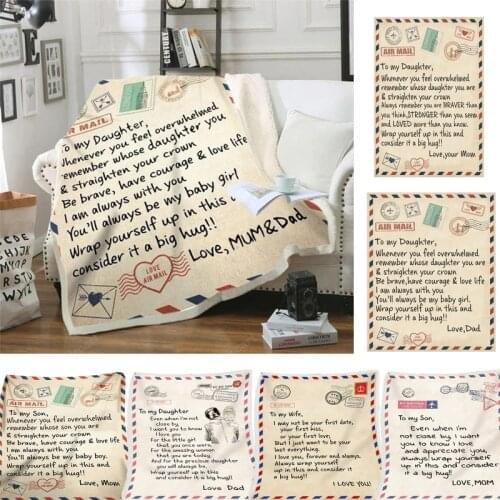 AIR MAIL
To my Daughter,
Whenever you feel overwhelmed
remember whose daughter you are
& straighten your crown
Be brave, have courage & love life
I am always with you
You'll always be my baby girl
Wrap yourself up in this and
consider it a big hug!!
Love, MUM&Dad
LOVE
AIR MAIL
AIR MAIL
To my Daughter,
Whenever you feel overwhelmed
remember whose daughter you are
& straighten your crown
Always remember you are BRAVER than
you think,STRONGER than you seem
and LOVED more than you know.
Wrap yourself up in this and
consider it a big hug!!
Love,your Mom
AIR MAIL
To my Daughter,
Whenever you feel overwhelmed
remember whose daughter you are
& straighten your crown
Be brave,have courage & love life
I am always with you
You'll always be my baby girl.
Wrap yourself up in this and
consider it a big hug!!
Love,Dad
AIR MAIL
To my Son,
Whenever you feel overwhelmed
remember whose son you are
& straighten your crown
Be brave, have courage & love life
I am always with you
You'll always be my baby boy.
Wrap yourself up in this and
consider it a big hug!!
Love, MOM
To my Daughter
Even when i'm not
close by
I want you to know
I love you
For the little girl
that you once were,
For the amazing woman
that you are today.
And for the precious daughter
you will always be.
Wrap yourself up in this
and consider it a big hug!
Love Dad
To my Wife,
I may not be your first date,
your first kiss,
or your first love.
But I just want to be
your last everything.
I love you, forever and always.
Wrap yourself up in this
and consider it a big hug!
I Love You!
To my Son,
Even when i'm
not close by I want
you to know I love
and appreciate you,
always wrap yourself
up in this and consider
it a big hug!
Love, MOM